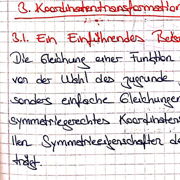 3. Koordinatentransformation
3.1. Ein Einführendes Beis
Die Gleichung einer Funktion
von der Wahl des zugrunde
sonders einfache Gleichungen
symmetriegerechtes Koordinaten
llen Symmetrieeigenschaften de
trägt.